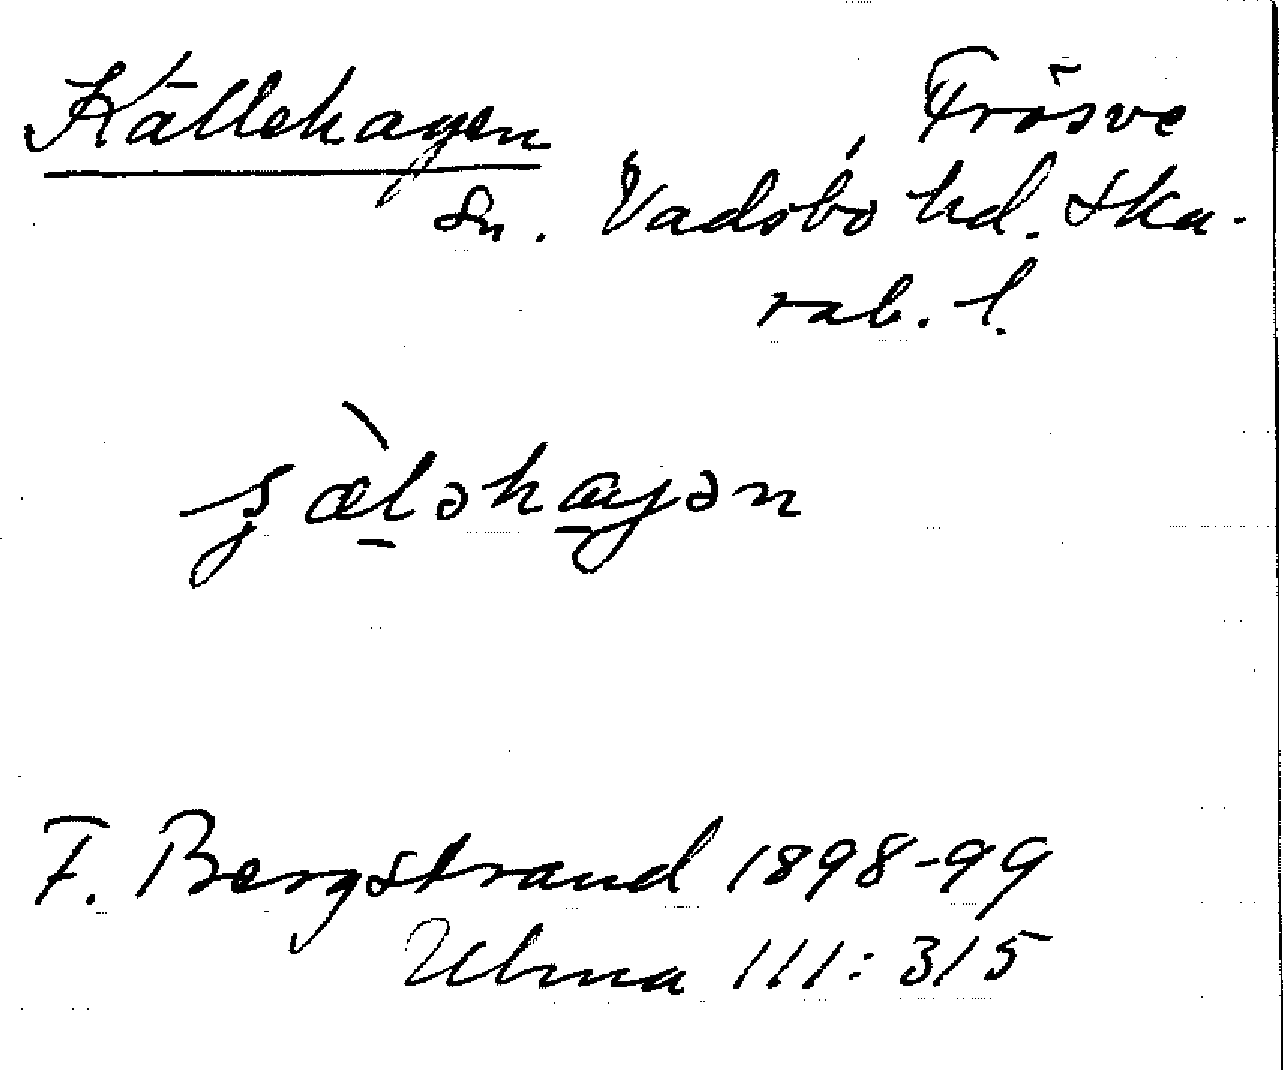 Källehagen, Frösve
sn. Vadsbo hd. Ska-
rab. l.
F. Bergstrand 1898-99
Ulma 111:315